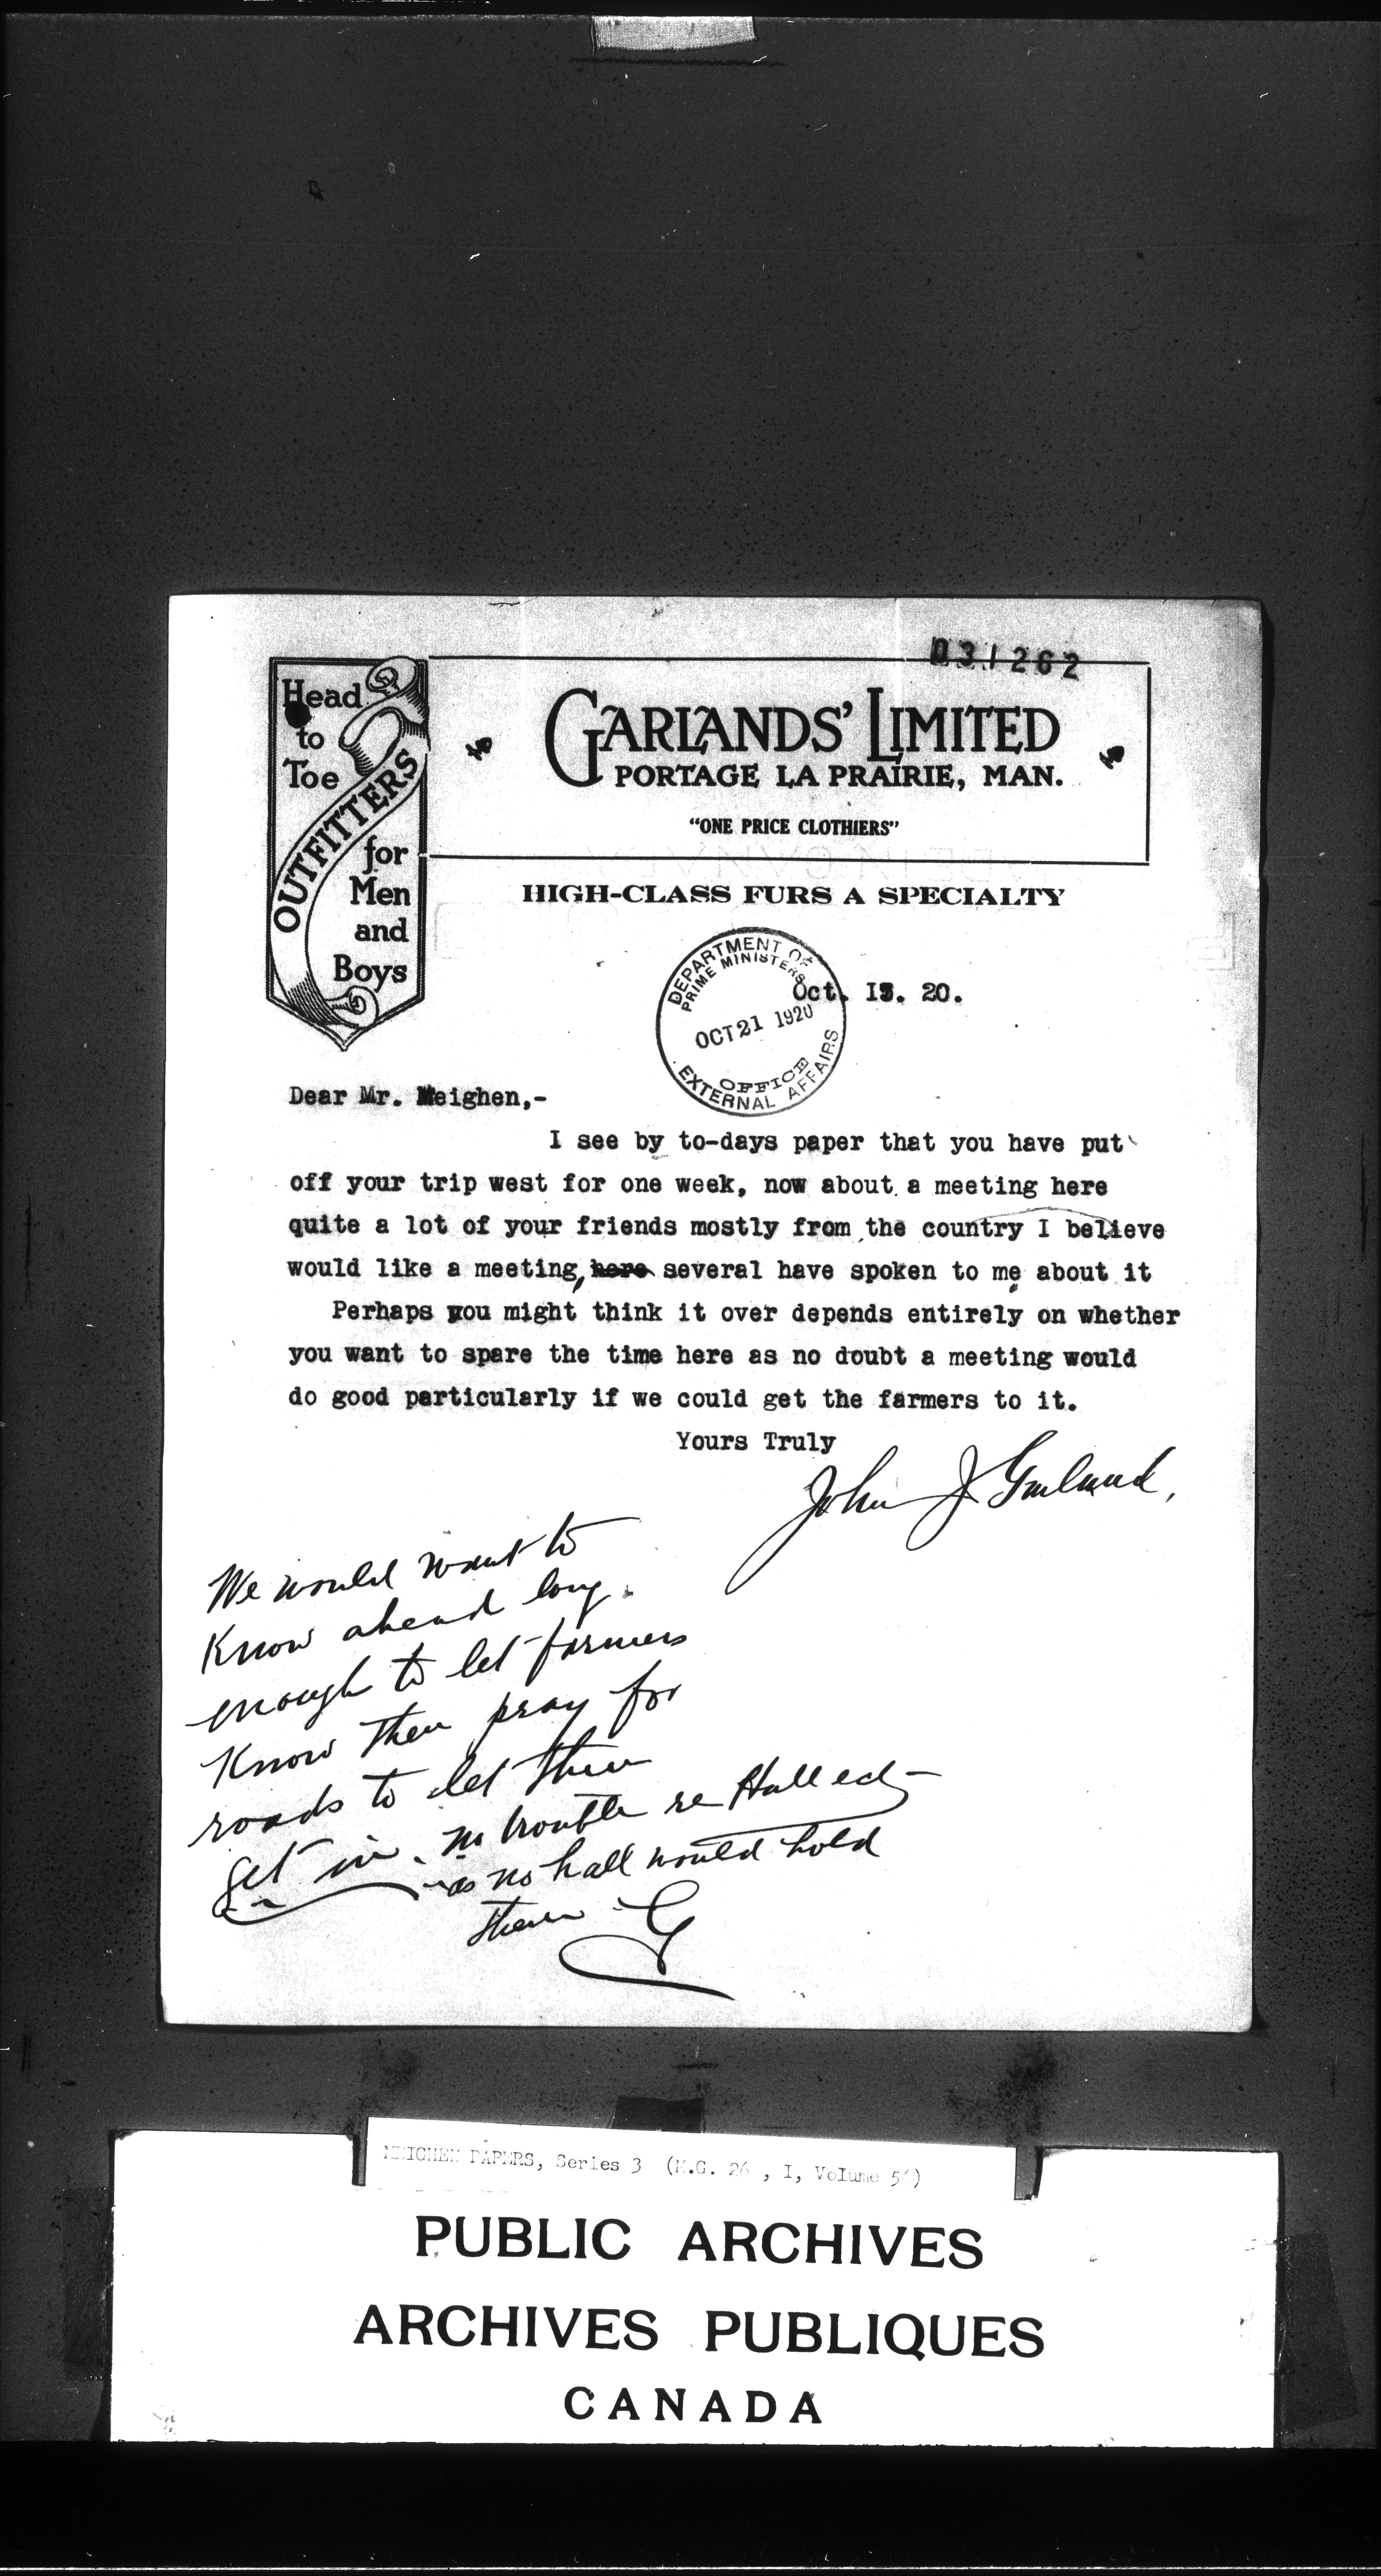 031262
Head
to
Toe
OUTFITTERS
for
Men
and
Boys
GARLANDS' LIMITED
PORTAGE LA PRAIRIE, MAN.
"ONE PRICE CLOTHIERS"
HIGH-CLASS FURS A SPECIALTY
DEPARTMENT OF
PRIME MINISTERS
OCT 21 1920
OFFICE
EXTERNAL AFFAIRS
Oct. 20.
Dear Mr. Meighen,-
I see by to-days paper that you have put
off your trip west for one week, now about a meeting here
quite a lot of your friends mostly from the country I believe
would like a meeting, here several have spoken to me about it
Perhaps you might think it over depends entirely on whether
you want to spare the time here as no doubt a meeting would
do good particularly if we could get the farmers to it.
Yours Truly
John J Garland.
We would want to
Know ahead long
enough to let farmers
Know then pray for
roads to let them
get in. no trouble re Hall ect
as no hall would hold
them G
MEIGHEN PAPERS, Series 3 (M.G. 26, I, Volume
PUBLIC ARCHIVES
ARCHIVES PUBLIQUES
CANADA